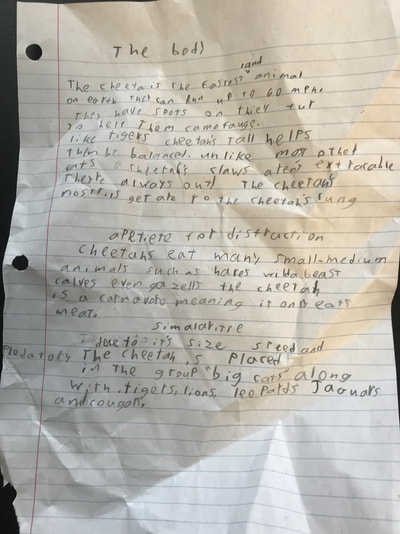 The body
The cheeta is the fastest land animal
on earth they can run up to 60 mph.
They have spots on they fur
to help them camofauge.
like tigers cheetahs tail helps
them be balanced. unlike most other
cats cheetah's claws aren't extracable
There always out! The cheetah's
nostrils get air to the cheetah's lung
appitete for distraction
Cheetahs eat many small-medium
animals such as hares wilda beast
calves even gazells the cheetah
is a carnavore meaning it only eats
meat.
simalaritie
due to it's size speed and
Predatory The cheetah is placed
in the group "big cats" along
with tigers, lions, leopards Jaguars
and cougars.